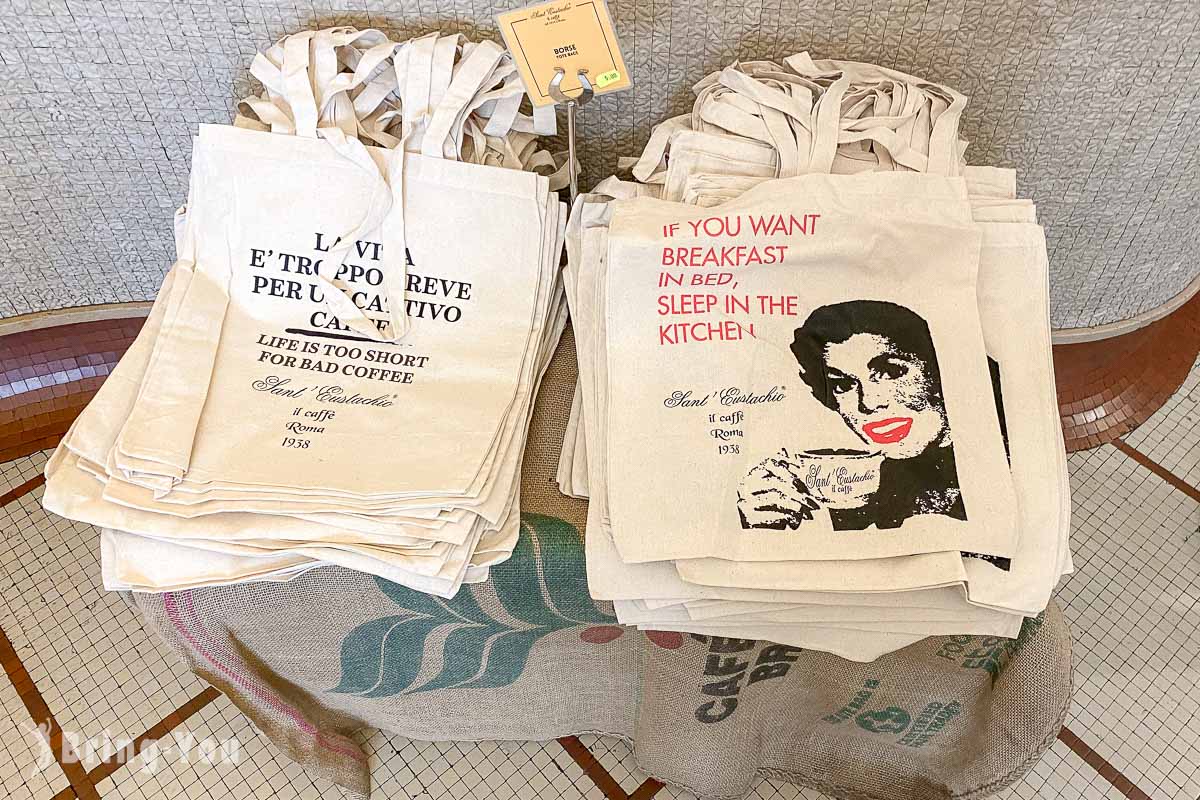 Sant'Eustachio
il caffè
BORSE
TOTE BAGS
LA VITA
E' TROPPO BREVE
PER UN CATTIVO
CAFFE'
LIFE IS TOO SHORT
FOR BAD COFFEE
Sant'Eustachio®
il caffè
Roma
1938
IF YOU WANT
BREAKFAST
IN BED,
SLEEP IN THE
KITCHEN
Sant'Eustachio®
il caffè
Roma
1938
Sant'Eustachio
il caffè
CAFE
BRA
Bring-You